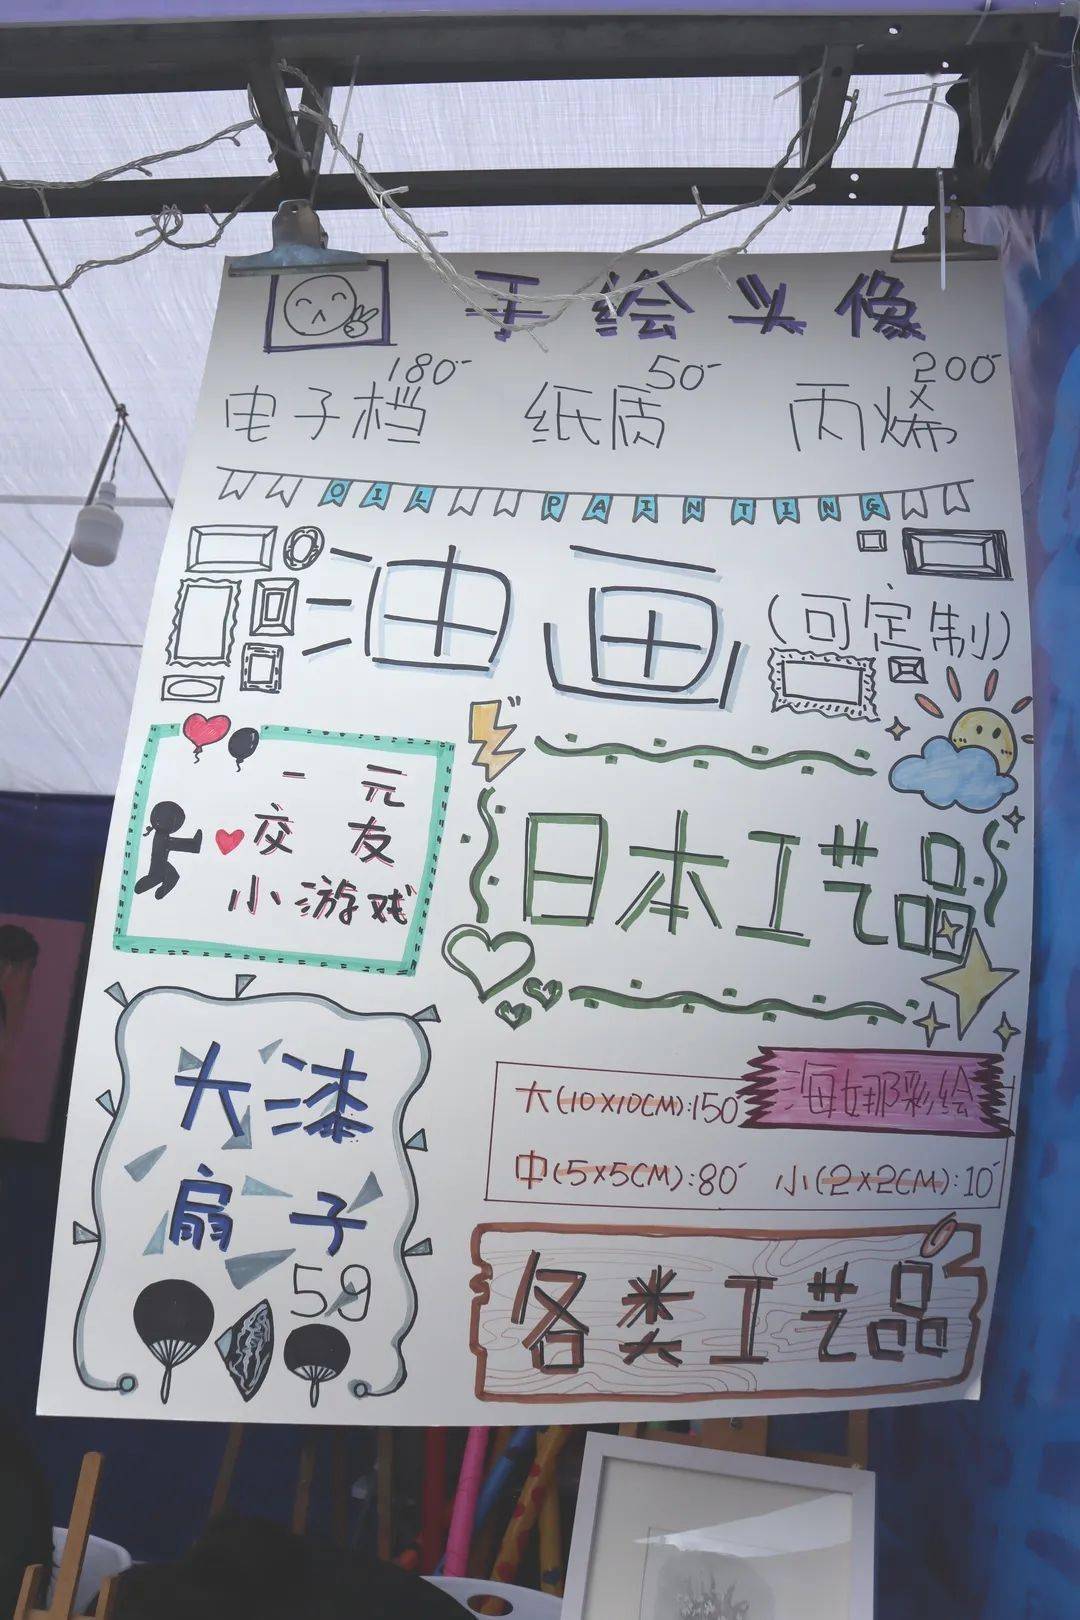 手绘头像
180 50 200
电子档 纸质 丙烯
OIL PAINTING
油画 (可定制)
一元
交友
小游戏
日本工艺品
大漆
扇子
59
海娜彩绘
大(10X10CM):150
中(5X5CM):80 小(2X2CM):10
各类工艺品